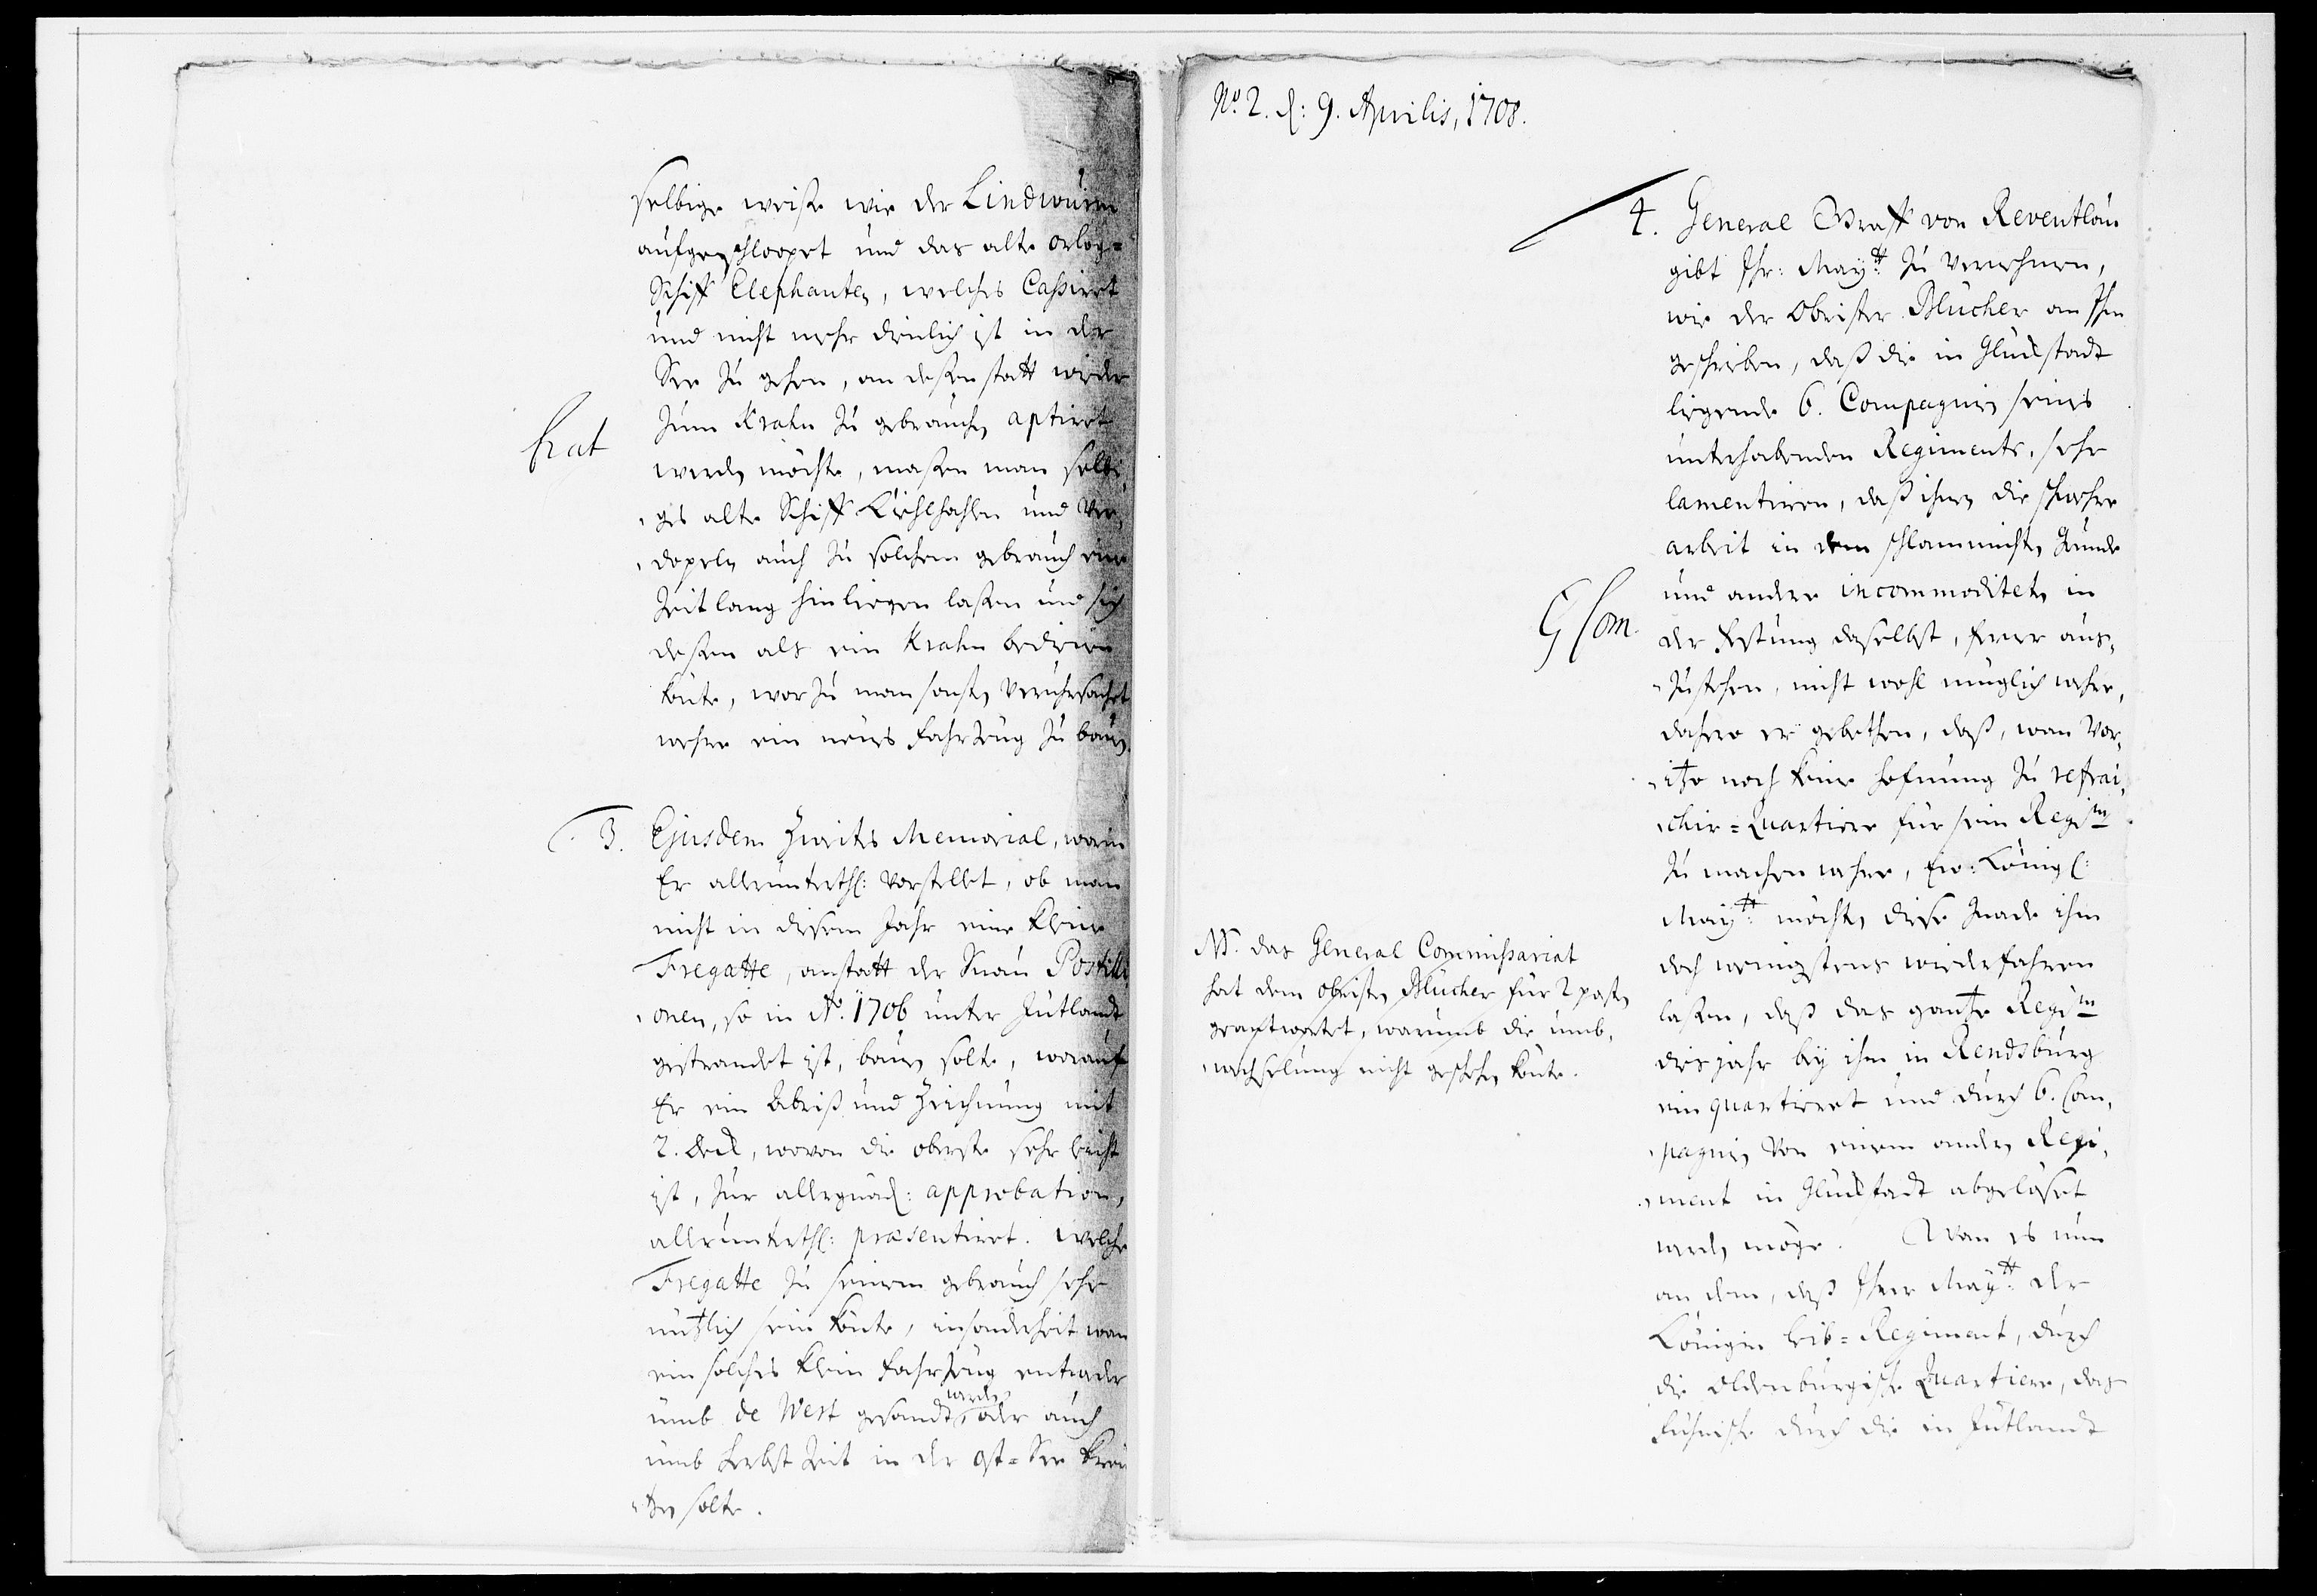 selbige weiße wie der Lindwurm
aufgeschlooxet und das alte orlog=
Schiff Elephanten, welches Cassiret
und nicht mehr dienlich ist in der
See zu gehen, an deßen statt wieder
zum Krahn zu gebrauchen aptiret
werden möchte, maßen man selbi,
ges alte Schiff Kiehlhahlen und Ver,
dopeln auch zu solchem gebrauch eine
Zeitlang hinliegen laßen und sich
deßen als ein Krahn bedienen
könte, worzu man sonsten veruhrsachet
wehre ein neues Fahrzeug zu bauen.
hat
3. Ejusdem Zweites Memorial, worin
Er allerunterth: vorstellet, ob man
nicht in diesem Jahr eine kleine
Fregatte, anstatt der Snau Postilli
onen, so in Ao. 1706 unter Jütlandt
gestrandet ist, bauen solte, worauf
Er ein Abriß und Zeichnung mit
2. deck, wovon die oberste sehr leicht
ist, zur allergnäd: approbation,
allerunterth: præsentiret. Welche
Fregatte zu seinem gebrauch sehr
nützlich sein könte, insonderheit wan
ein solches klein Fahrzeug entweder
umb de West gesandt werden oder auch
umb Herbst Zeit in der Ost=See kreu
tzen solte.
No. 2. d: 9. Aprilis, 1708.
4. General Graff von Reventlau
gibt Ihr: Maytt: zu vernehmen,
wie der Obrister Blücher an Ihm
geschrieben, daß die in Glückstadt
liegende 6. Compagnien seines
unterhabenden Regiments, sehr
lamentiren, daß ihnen die schwehre
arbeit in dem schlammichten Grunde
und andere incommoditeten in
der Festung daselbst, ferner aus,
zustehen, nicht wohl müglich wehre,
dahero er gebethen, daß, wan vor,
itzo noch keine hofnung zu refrai,
chir=Quartiere für sein Regim
zu machen wehre, Ew: Königl:
Maytt: möchten diese Gnade ihm
doch wenigstens wiederfahren
laßen, daß das gantze Regim
dis jahr bey ihm in Rendsburg
ein quartieret und durch 6. Com,
pagnien von einem andern Regi,
ment in Glückstadt abgelöset
werden möge. Wan es nun
an dem, daß Ihrer Maytt: der
Königin leib=Regiment, durch
die Oldenburgische Quartiere, das
Fühnische durch die in Jütlandt
G Com.
NB. das General Commissariat
hat dem Obristen Blücher für 2 posten
geantwortet, warumb die umb,
wechselung nicht geschehen könte.